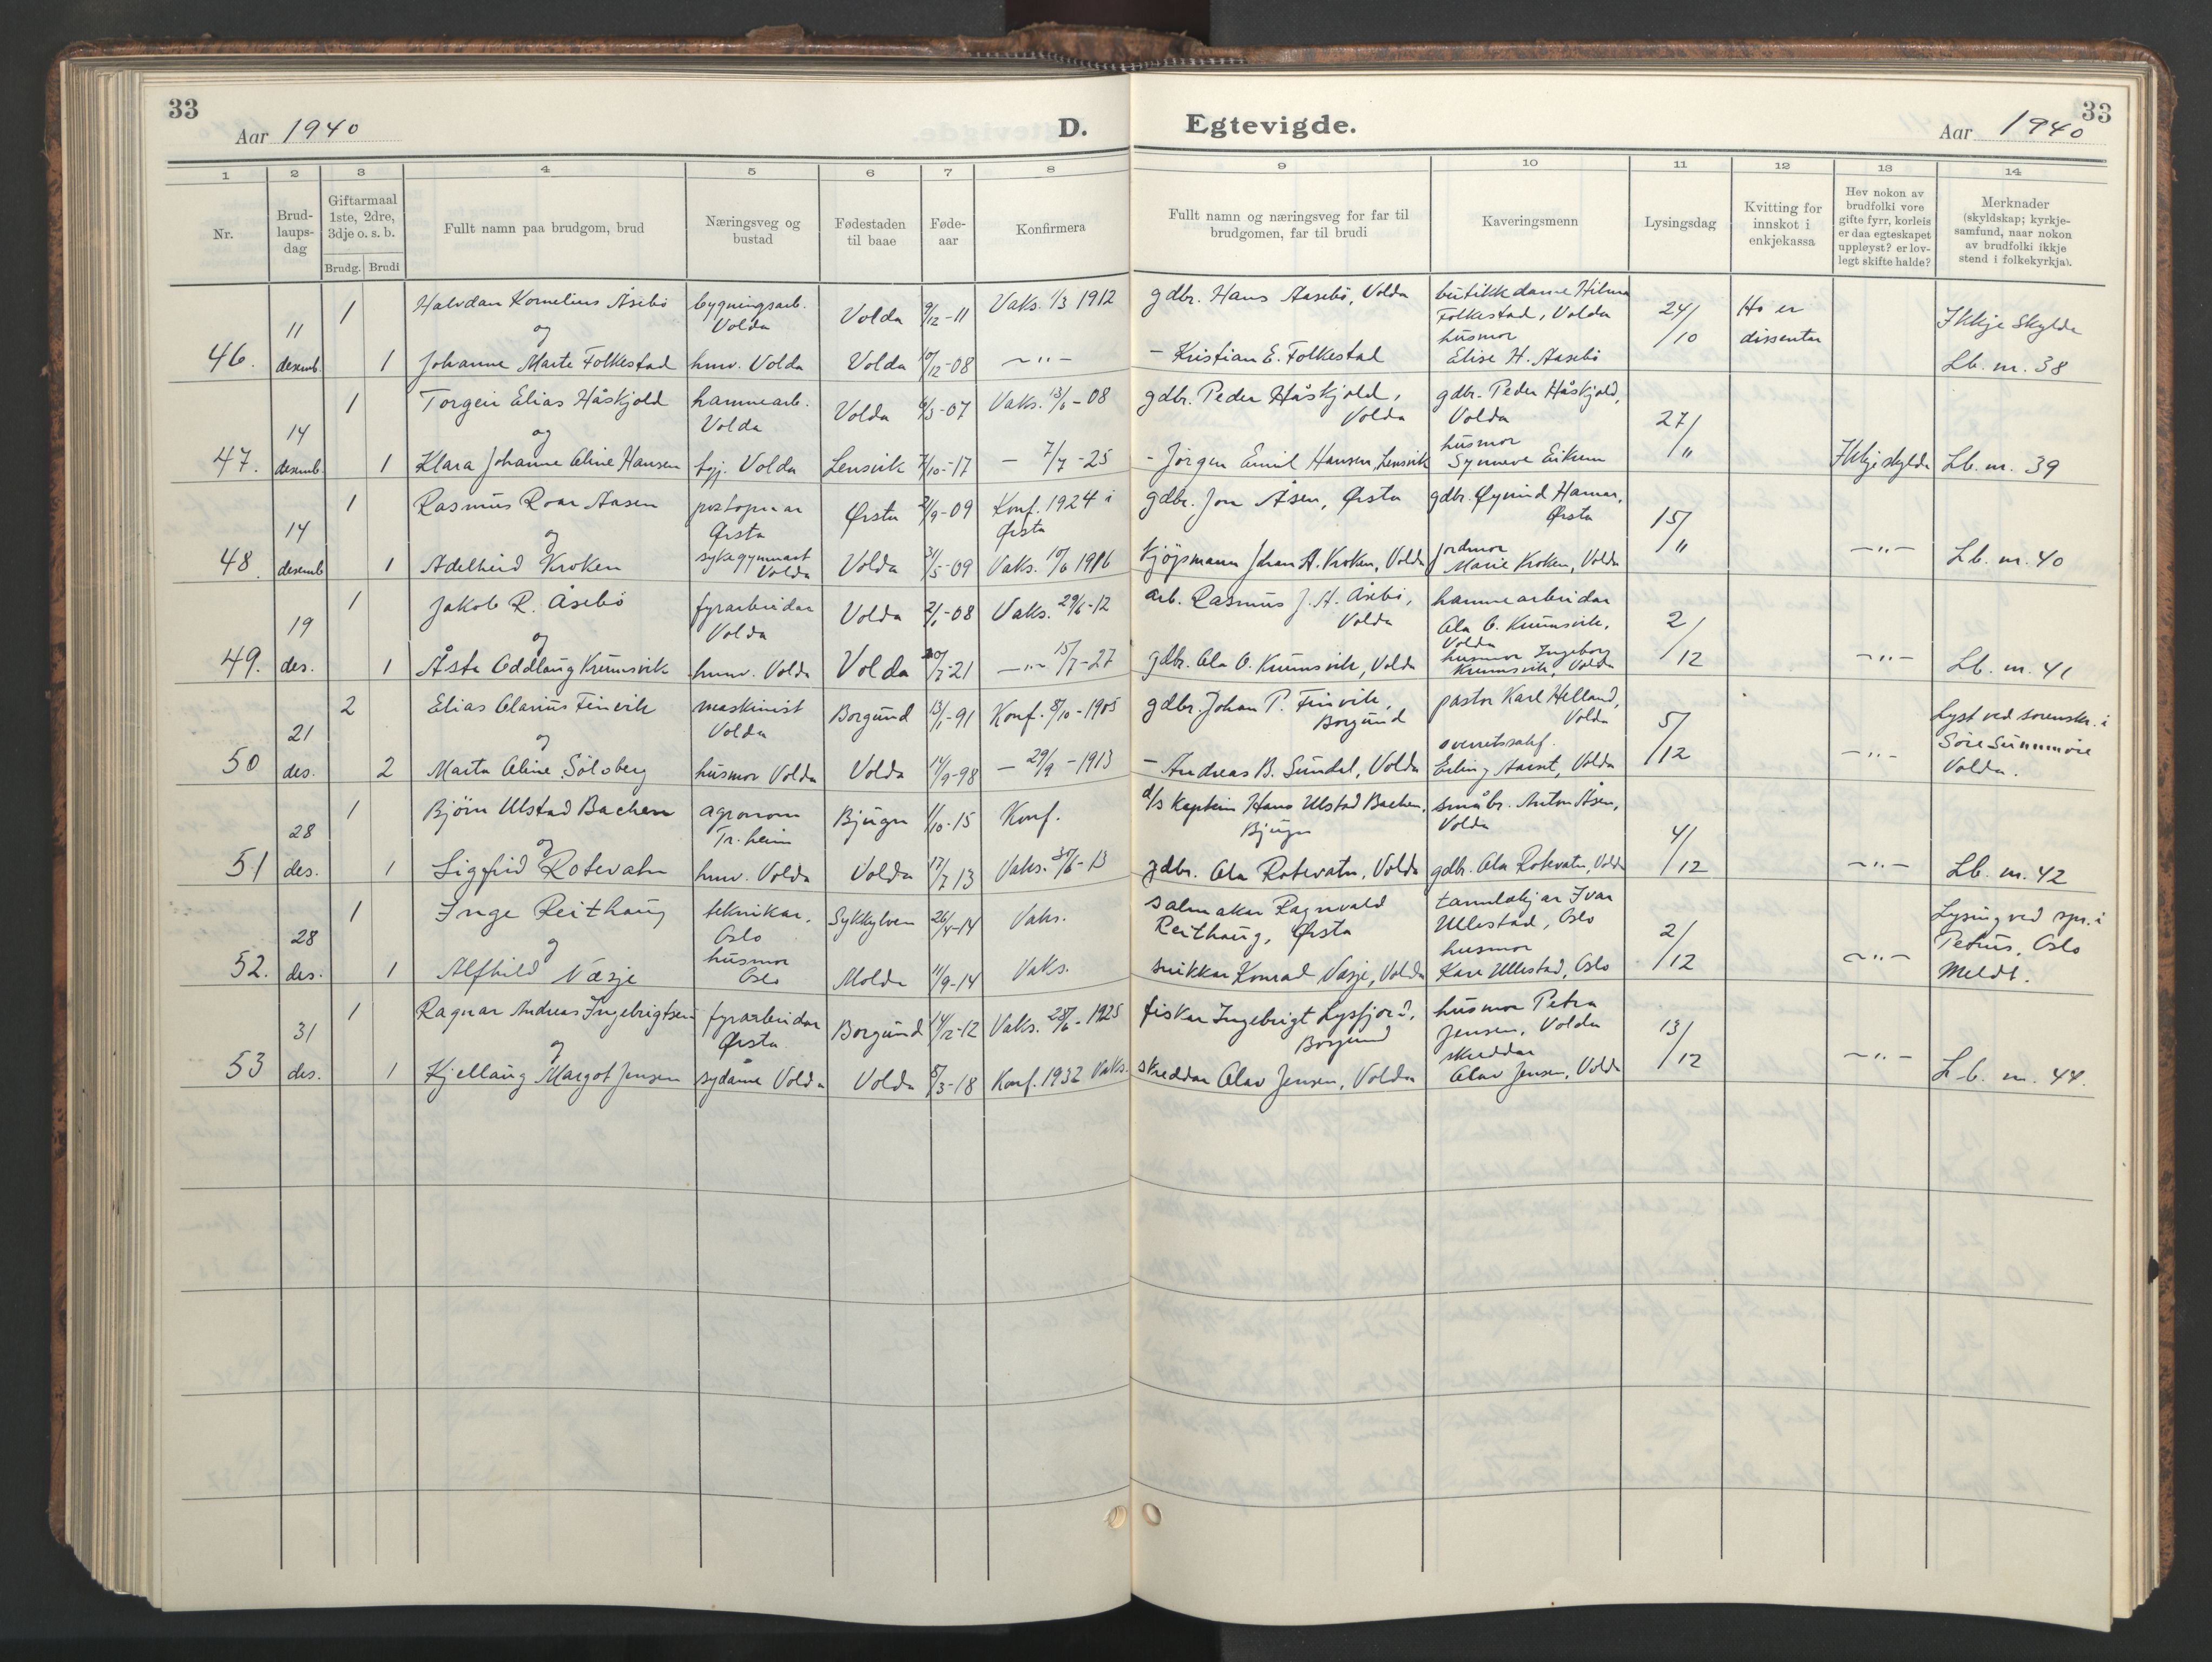 33
Aar 1940
D.
Egtevigde.
Aar 1940
33
1 2 3 4 5 6 7 8 9 10 11 12 13 14
Nr.
Brud-
laups-
dag
Giftarmaal
1ste, 2dre,
3dje o. s. b.
Brudg. Brudi
Fullt namn paa brudgom, brud
Næringsveg og
bustad
Fødestaden
til baae
Føde-
aar
Konfirmera
Fullt namn og næringsveg for far til
brudgomen, far til brudi
Kaveringsmenn
Lysingsdag
Kvitting for
innskot i
enkjekassa
Hev nokon av
brudfolki vore
gifte fyrr, korleis
er daa egteskapet
uppløyst? er lov-
legt skifte halde?
Merknader
(skyldskap; kyrkje-
samfund, naar nokon
av brudfolki ikkje
stend i folkekyrkja).
46. 11 desemb.
1 Halvdan Kornelius Åsebö bygningsarb. Volda Volda 9/12-11 Vaks. 1/3 1912
og
1 Johanne Marte Folkestad huv. Volda Volda 10/12-08 - " -
gdbr. Hans Aasebö, Volda
- Kristian E. Folkestad
butikkdame Hilma
Folkestad, Volda
husmor
Elise H. Aasebö
24/10
Ho er
dissentar
Ikkje skylde
Lb. nr. 38
47. 14 desemb.
1 Torgeir Elias Håskjold hamnearb. Volda Volda 6/3-07 Vaks. 13/6-08
og
1 Klara Johanne Aline Hansen tgj. Volda Lensvik 7/10-17 - 7/7-25
gdbr. Peder Håskjold,
Volda
- Jörgen Emil Hansen, Lensvik
gdbr. Peder Håskjold,
Volda
husmor
Synneve Eikrem
27/11
Ikkje skylde
Lb. nr. 39
48. 14 desemb
1 Rasmus Roar Aasen postopnar Ørsta Ørsta 21/9-09 Konf. 1924 i
Ørsta
og
1 Adelheid Kroken sykegymnast
Volda Volda 31/5-09 Vaks. 10/6 1916
gdbr. Jon Åsen, Ørsta
Kjöpmann Johan A. Kroken, Volda
gdbr. Øyvind Hamar,
Ørsta
jordmor
Marie Kroken, Volda
15/11
- " -
Lb. nr. 40
49. 19 des.
1 Jakob R. Åsebö fyrarbeidar
Volda Volda 2/1-08 Vaks. 29/6-12
og
1 Åsta Oddlaug Krumsvik huv. Volda Volda 20/7-21 - " - 15/7-27
arb. Rasmus J. A. Åsebö,
Volda
gdbr. Ola O. Krumsvik, Volda
hamnearbeidar
Ola O. Krumsvik,
Volda
husmor Ingeborg
Krumsvik, Volda
2/12
- " -
Lb. nr. 41
50 21 des.
2 Elias Olarius Finvik maskinist
Volda Borgund 13/1-91 Konf. 8/10-1905
og
2 Marta Oline Sölsberg husmor Volda Volda 14/9-98 - 29/9-1913
gdbr. Johan P. Finvik,
Borgund
- Andreas B. Sundal, Volda
pastor Karl Helland,
Volda
overrettssakf.
Erling Aarset, Volda
5/12
- " -
Lyst ved sorenskr. i
Søre Sunnmøre
Volda.
51 28 des.
1 Björn Ulstad Bachen agronom
Tr.heim Bjugn 1/10-15 Konf.
og
1 Sigfrid Rotevatn huv. Volda Volda 17/7 13 Vaks. 30/6-13
d/s kaptein Hans Ulstad Bachen,
Bjugn
gdbr. Ola Rotevatn, Volda
småbr. Anton Åsen,
Volda
gdbr. Ola Rotevatn, Volda
4/12
- " -
Lb. nr. 42
52. 28 des.
1 Inge Reithaug teknikar,
Oslo Sykkylven 26/4-14 Vaks.
og
1 Alfhild Næsje husmor
Oslo Molde 11/9-14 Vaks.
salmakar Ragnvald
Reithaug, Ørsta
snikkar Konrad Næsje, Volda
tannlækjar Ivar
Ullestad, Oslo
husmor
Kare Ullestad, Oslo
2/12
- " -
Lysing ved spr. i
Petrus, Oslo
meldt.
53 31 des.
1 Ragnar Andreas Ingebrigtsen fyrarbeidar
Ørsta Borgund 14/12-12 Vaks. 28/6-1925
og
1 Kjellaug Margot Jensen sydame Volda Volda 8/3-18 Konf. 1932 Vaks.
fiskar Ingebrigt Lysfjord,
Borgund
skreddar Olav Jensen, Volda
husmor Petra
Jensen, Volda
skreddar
Olav Jensen, Volda
13/12
- " -
Lb. nr. 44.